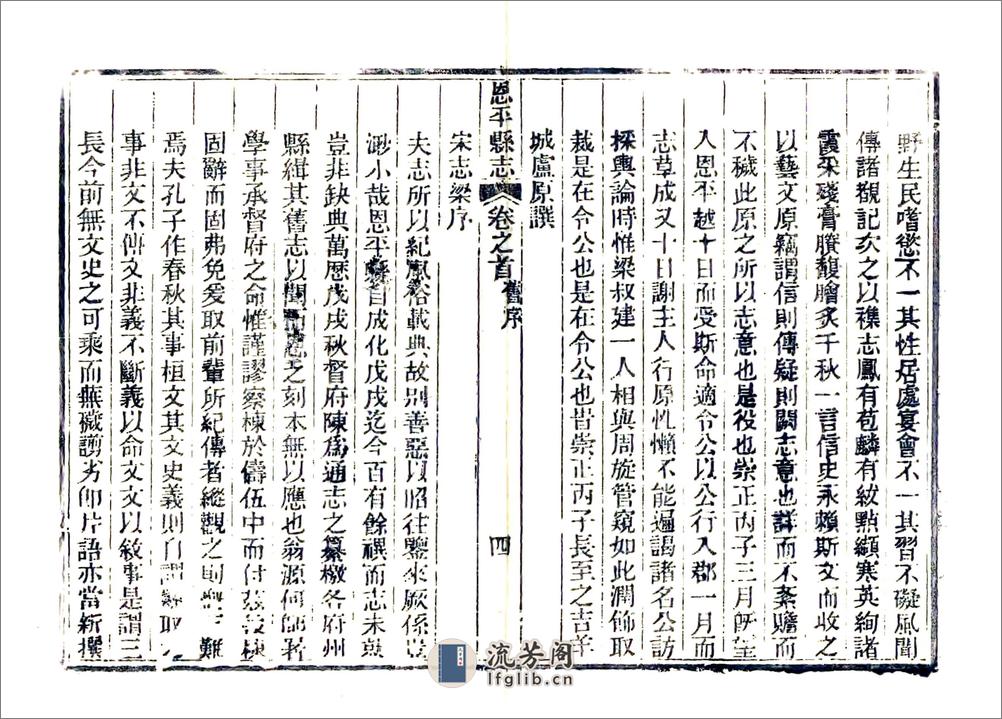 野生民嗜慾不一其性居處宴會不一其習不礙風聞
傳諸觀記亥之以襍志鳳有苞麟有紋點纈寒英絢諸
霞采殘膏賸馥膾炙千秋一言信史永賴斯文而收之
以藝文原竊謂信則傳疑則闕志意也詳而不紊贍而
不穢此原之所以志意也是役也崇正丙子三月既望
入恩平越十日而受斯命適令公以公行入郡一月而
志草成又十日謝主人行原性懶不能遍謁諸名公訪
採輿論時惟梁叔建一人相與周旋管窺如此潤飾取
裁是在令公也是在令公也昔崇正丙子長至之吉羊
城盧原譔
宋志梁序
夫志所以紀風俗載典故別善惡以昭往鑒來厥係
渺小哉恩平縣自成化戊戌迄今百有餘禩而志未
豈非缺典萬歷戊戌秋督府陳爲通志之纂檄各府州
縣緝其舊志以聞而恩之刻本無以應也翁源何師
學事承督府之命惟謹謬察棟於儔伍中而付
固辭而固弗免爰取前輩所紀傳者縱觀之則 難
焉夫孔子作春秋其事桓文其文史義則自謂 取
事非文不傳文非義不斷義以命文文以敘事是謂三
長今前無文史之可乘而蕪穢謭劣卽片語亦當新撰
恩平縣志
卷之首 舊序
四
流芳阁
lfglib.cn